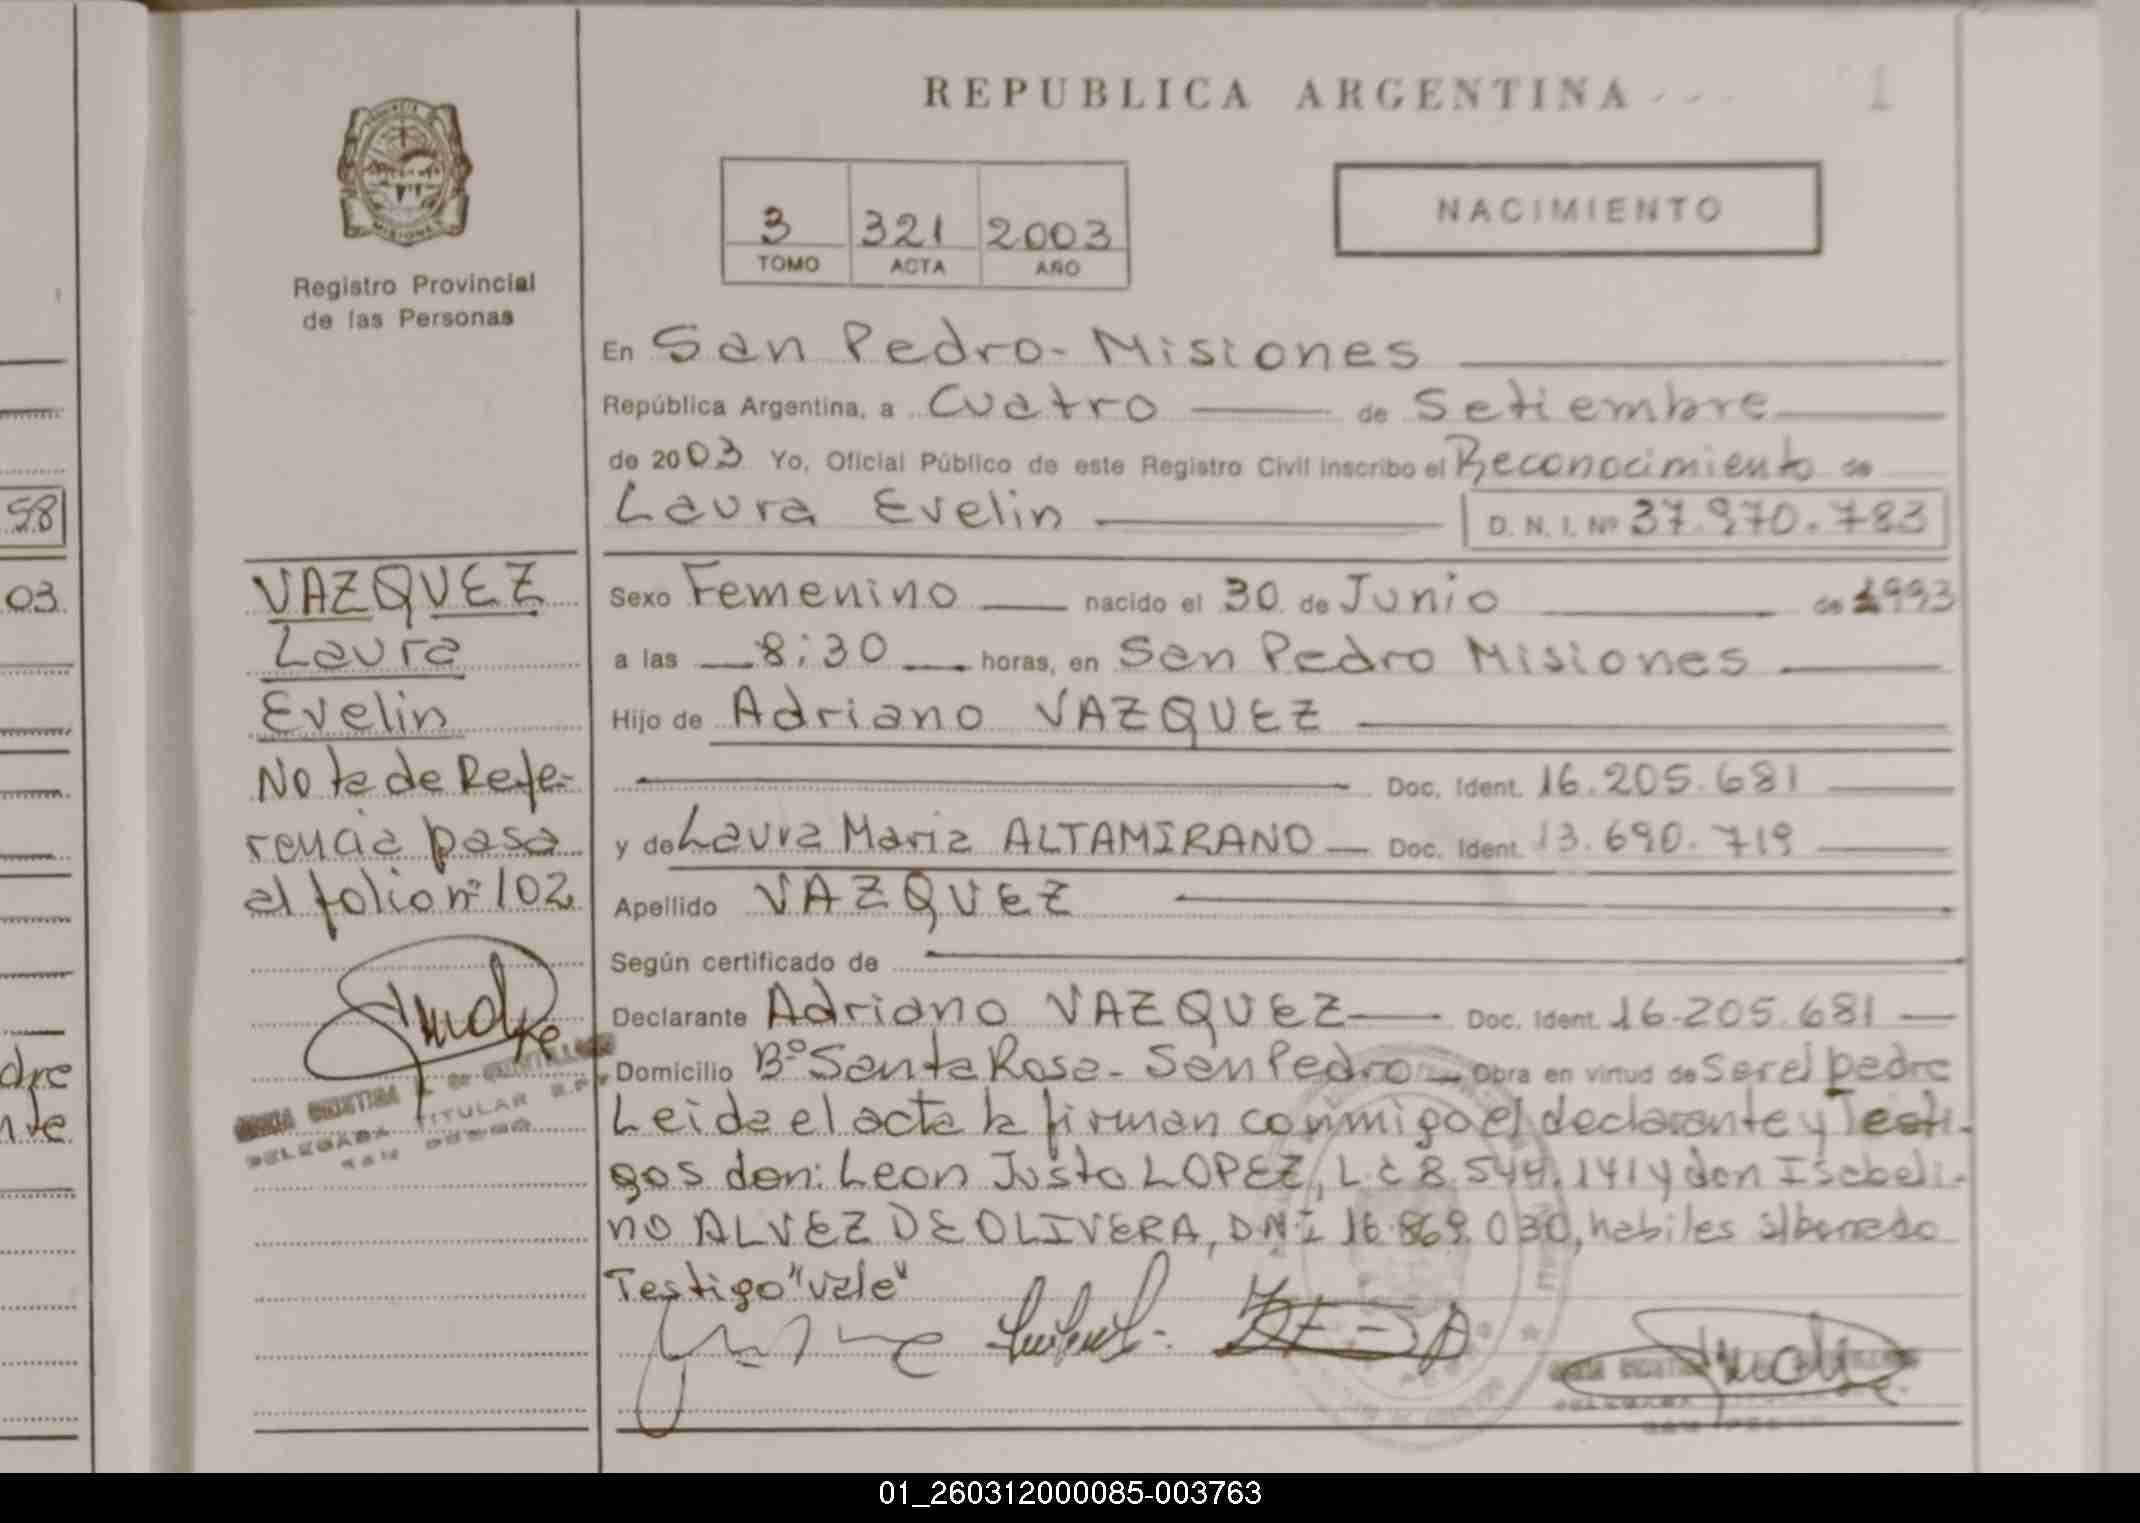 REPUBLICA ARGENTINA
1
3 321 2003
TOMO ACTA AÑO
NACIMIENTO
Registro Provincial
de las Personas
En San Pedro - Misiones
República Argentina, a Cuatro de Setiembre
de 2003 Yo, Oficial Público de este Registro Civil inscribo el Reconocimiento de
Laura Evelin D. N. I. Nº 37.970.783
58
03
VAZQUEZ
Laura
Evelin
Nota de Refe-
rencia pasa
al folio nº 102
Sexo Femenino nacido el 30 de Junio de 1993
a las 8:30 horas, en San Pedro Misiones
Hijo de Adriano VAZQUEZ
Doc. Ident. 16.205.681
y de Laura Maria ALTAMIRANO Doc. Ident. 13.690.719
Apellido VAZQUEZ
Según certificado de
Declarante Adriano VAZQUEZ Doc. Ident. 16.205.681
Domicilio Bº Santa Rosa - San Pedro Obra en virtud de Ser el padre
Leida el acta la firman conmigo el declarante y Testi-
gos don: Leon Justo LOPEZ, L.E 8.544.141 y don Isabeli-
no ALVEZ DE OLIVERA, D.N.I 16.869.030, habiles
Testigo "vale"
DELEGADA TITULAR
SAN PEDRO
01_260312000085-003763